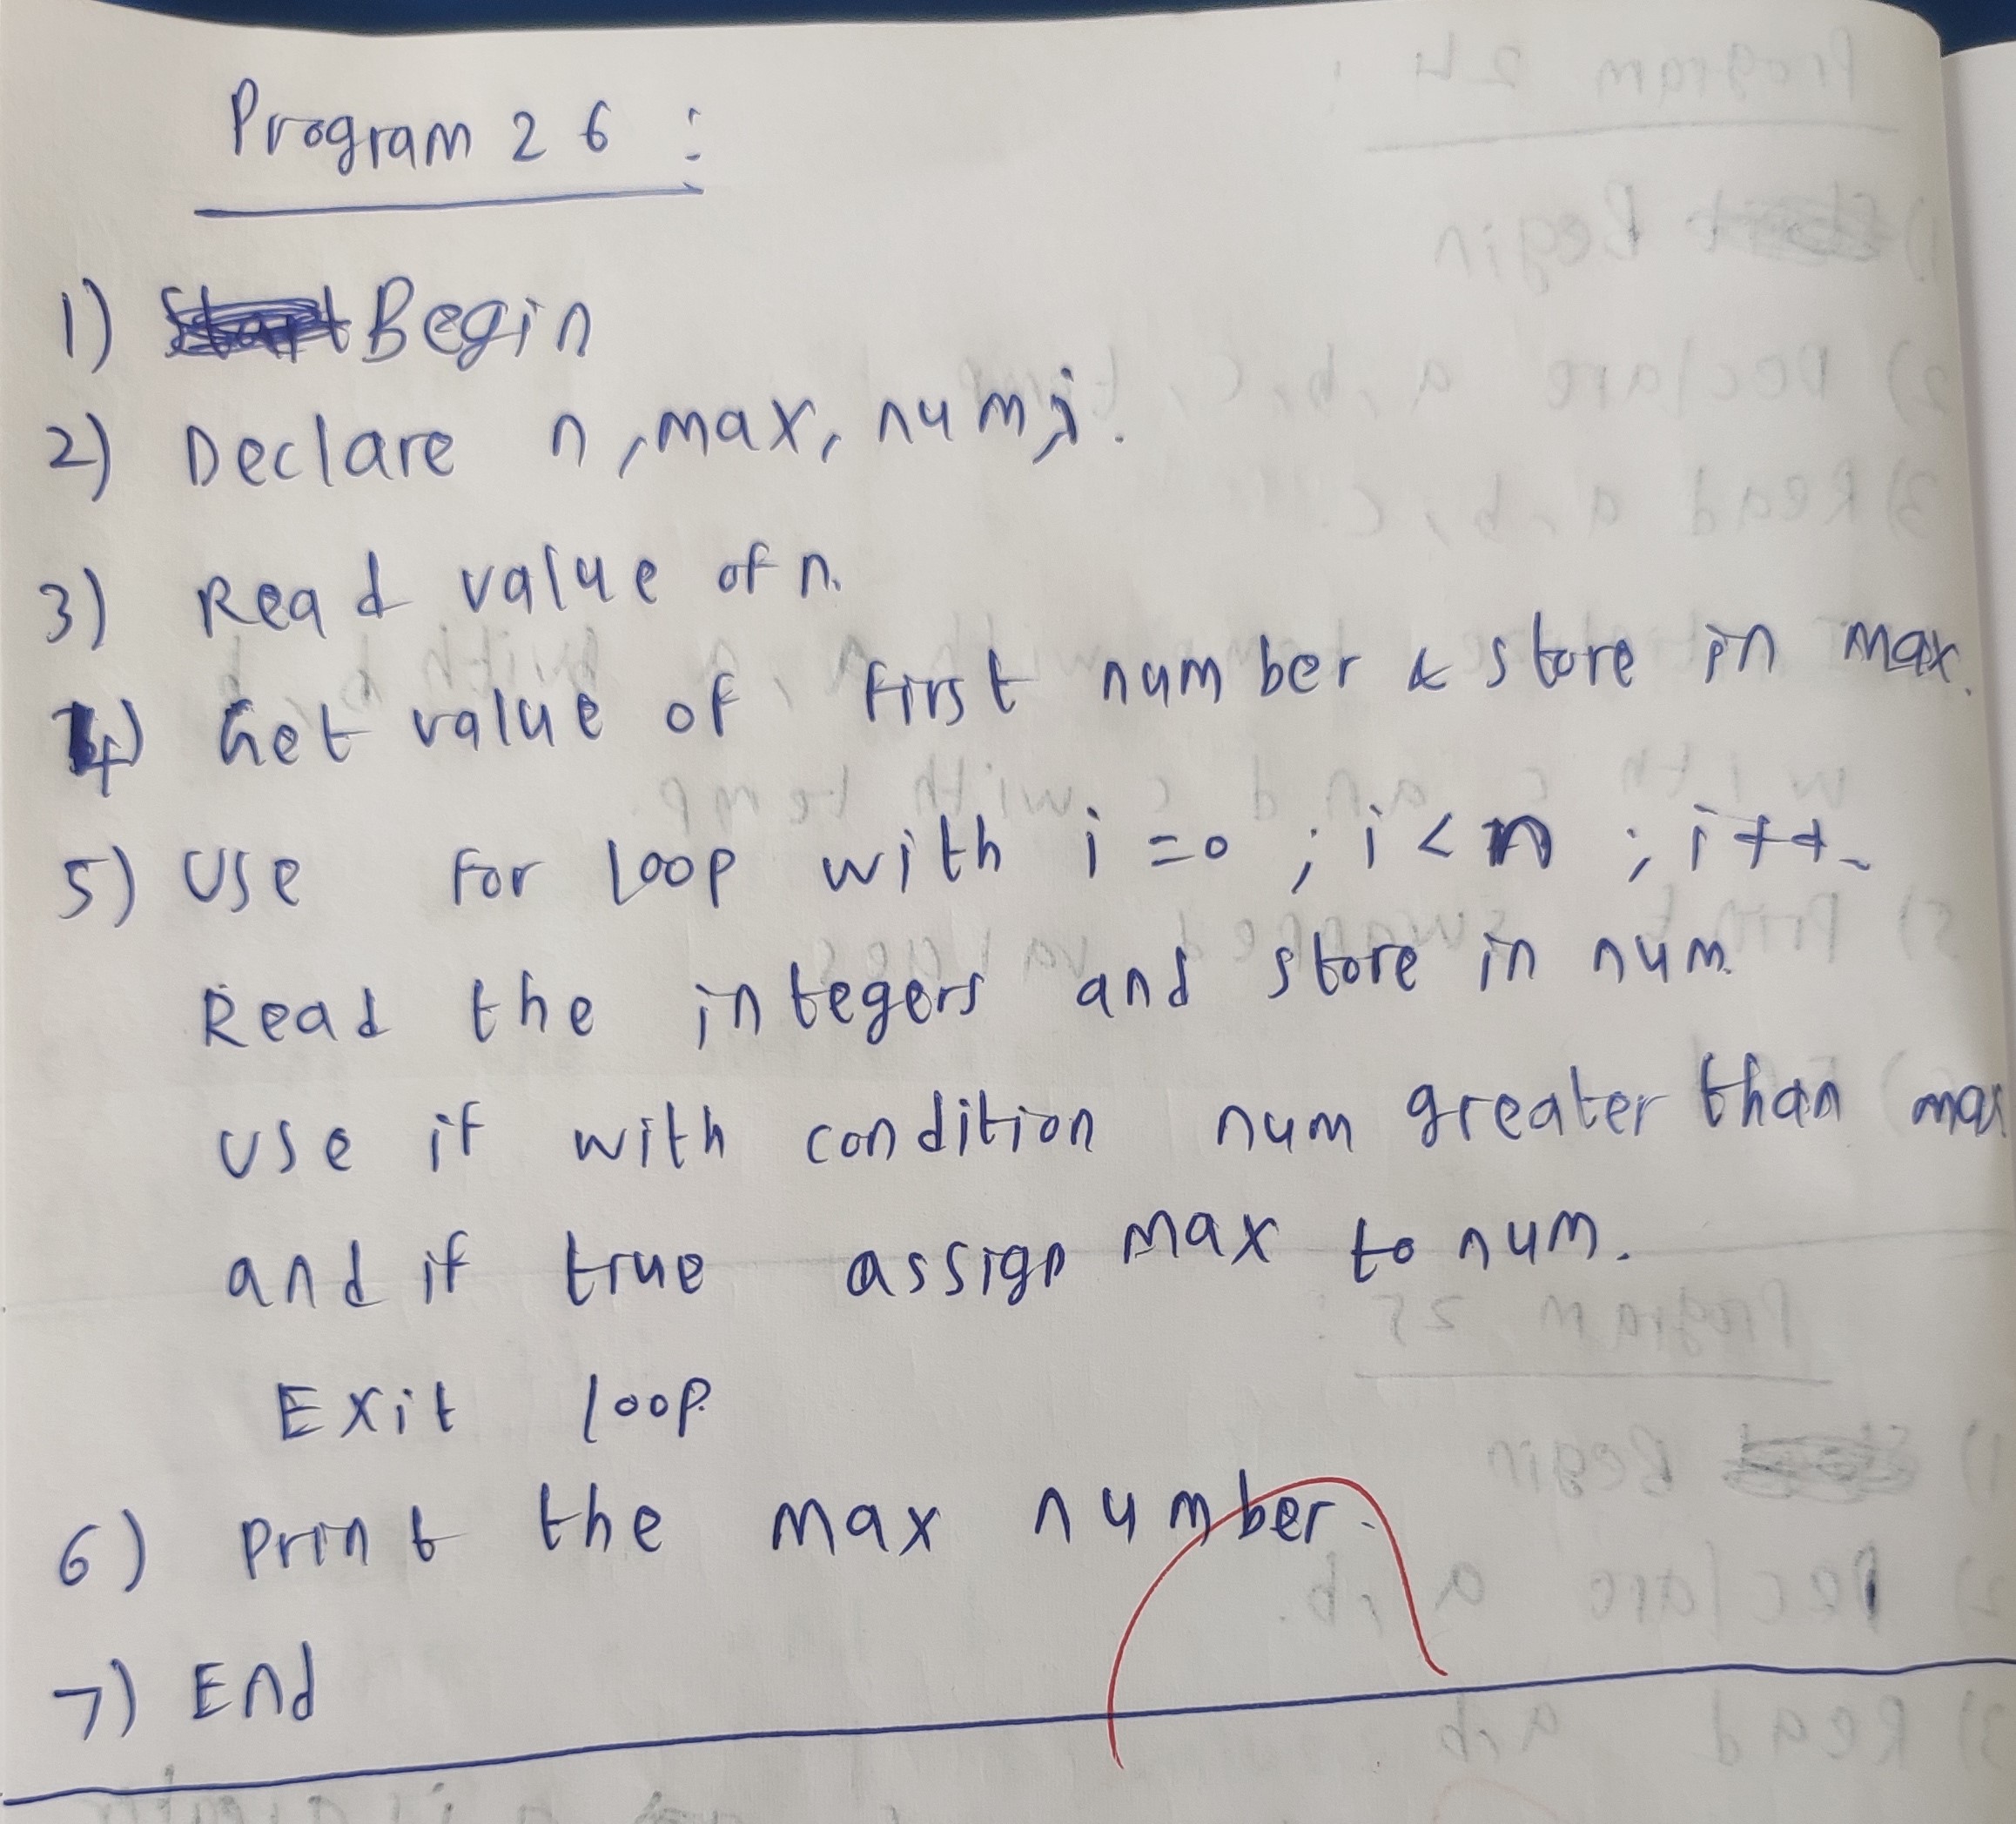 Program 26 :
1) Begin
2) Declare n, max, num, i.
3) Read value of n.
4) Get value of first number & store in max.
5) Use for loop with i = 0 ; i < n ; i++.
Read the integers and store in num.
use if with condition num greater than max
and if true assign max to num.
Exit loop.
6) Print the max number.
7) End